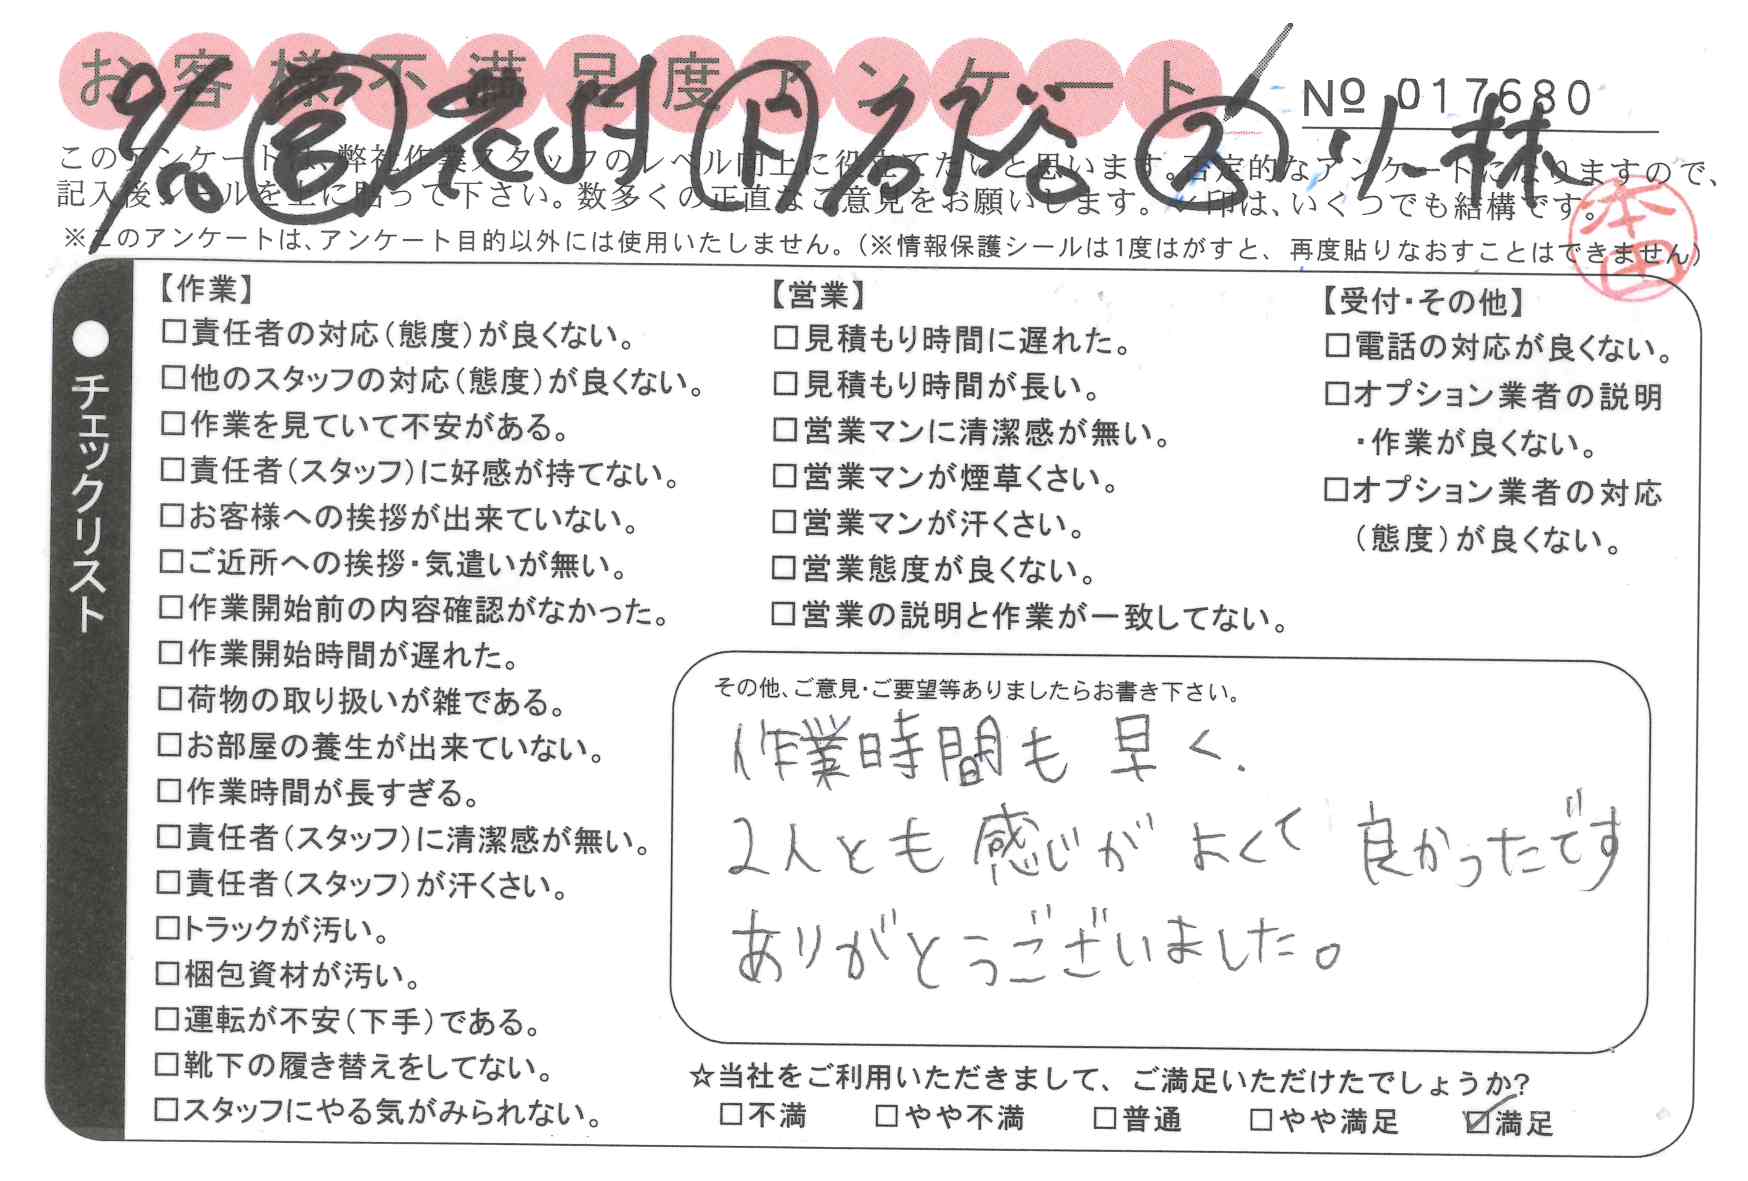 お客様不満足度アンケート
№ 017680
このアンケートは、弊社作業スタッフのレベル向上に役立てたいと思います。否定的なアンケートになりますので、
記入後シールを上に貼って下さい。数多くの正直なご意見をお願いします。✓印は、いくつでも結構です。
※このアンケートは、アンケート目的以外には使用いたしません。(※情報保護シールは1度はがすと、再度貼りなおすことはできません)
本田
●チェックリスト
【作業】
□責任者の対応(態度)が良くない。
□他のスタッフの対応(態度)が良くない。
□作業を見ていて不安がある。
□責任者(スタッフ)に好感が持てない。
□お客様への挨拶が出来ていない。
□ご近所への挨拶・気遣いが無い。
□作業開始前の内容確認がなかった。
□作業開始時間が遅れた。
□荷物の取り扱いが雑である。
□お部屋の養生が出来ていない。
□作業時間が長すぎる。
□責任者(スタッフ)に清潔感が無い。
□責任者(スタッフ)が汗くさい。
□トラックが汚い。
□梱包資材が汚い。
□運転が不安(下手)である。
□靴下の履き替えをしてない。
□スタッフにやる気がみられない。
【営業】
□見積もり時間に遅れた。
□見積もり時間が長い。
□営業マンに清潔感が無い。
□営業マンが煙草くさい。
□営業マンが汗くさい。
□営業態度が良くない。
□営業の説明と作業が一致してない。
【受付・その他】
□電話の対応が良くない。
□オプション業者の説明
・作業が良くない。
□オプション業者の対応
(態度)が良くない。
その他、ご意見・ご要望等ありましたらお書き下さい。
作業時間も早く.
2人とも感じがよくて良かったです
ありがとうございました。
☆当社をご利用いただきまして、ご満足いただけたでしょうか?
□不満 □やや不満 □普通 □やや満足 ☑満足